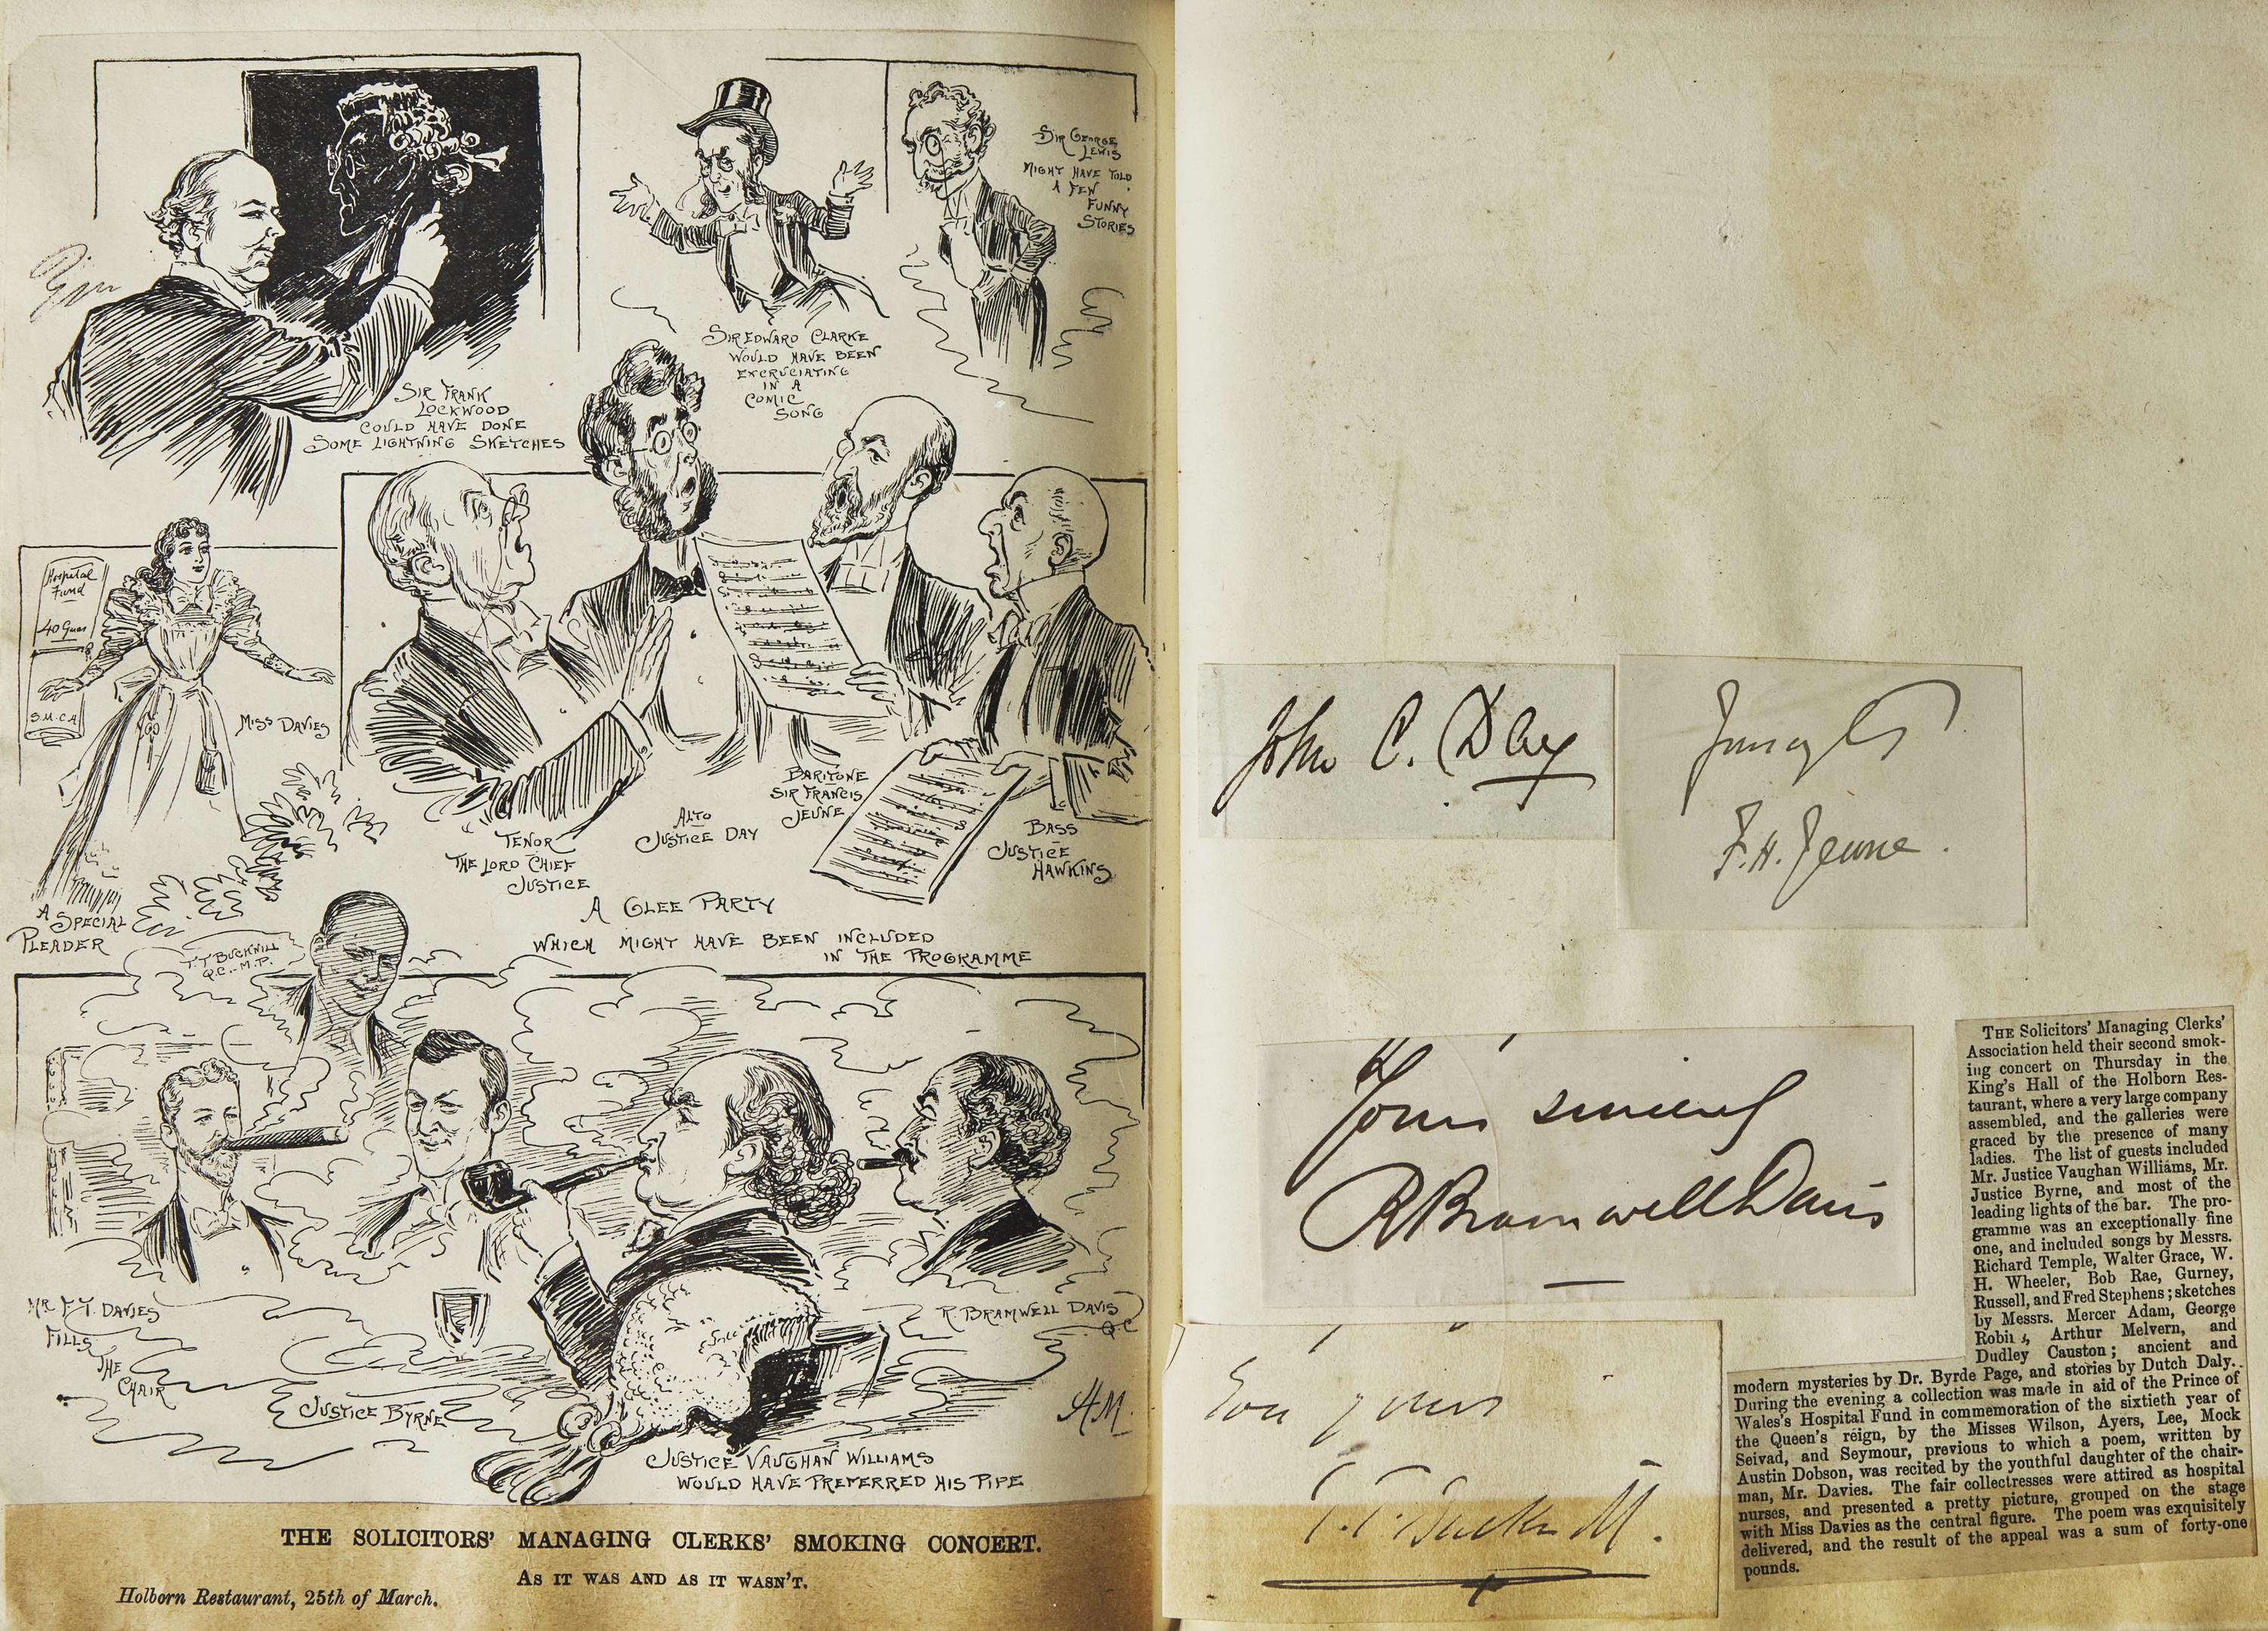 Sir George
Lewis
might have told
a few
funny
stories
Sir Edward Clarke
would have been
excruciating
in a
comic
song
Sir Frank
Lockwood
could have done
some lightning sketches
Hospital
Fund
40 Gns
S.M.C.A
Miss Davies
A Special
Pleader
Tenor
The Lord Chief
Justice
Alto
Justice Day
Baritone
Sir Francis
Jeune
Bass
Justice
Hawkins
A Glee Party
which might have been included
in the programme
T.T Bucknill
Q.C.-M.P.
Mr F.T. Davies
fills
the
chair
Justice Byrne
R. Bramwell Davis
QC
Justice Vaughan Williams
would have preferred his pipe
HM.
THE SOLICITORS' MANAGING CLERKS' SMOKING CONCERT.
AS IT WAS AND AS IT WASN'T.
Holborn Restaurant, 25th of March.
John C. Day
F.H. Jeune.
Yours sincerely
R Bramwell Davis
yours
T.T. Bucknill.
THE Solicitors' Managing Clerks'
Association held their second smok-
ing concert on Thursday in the
King's Hall of the Holborn Res-
taurant, where a very large company
assembled, and the galleries were
graced by the presence of many
ladies. The list of guests included
Mr. Justice Vaughan Williams, Mr.
Justice Byrne, and most of the
leading lights of the bar. The pro-
gramme was an exceptionally fine
one, and included songs by Messrs.
Richard Temple, Walter Grace, W.
H. Wheeler, Bob Rae, Gurney,
Russell, and Fred Stephens; sketches
by Messrs. Mercer Adam, George
Arthur Melvern, and
Dudley Causton; ancient and
modern mysteries by Dr. Byrde Page, and stories by Dutch Daly.
During the evening a collection was made in aid of the Prince of
Wales's Hospital Fund in commemoration of the sixtieth year of
the Queen's reign, by the Misses Wilson, Ayers, Lee, Mock
Seivad, and Seymour, previous to which a poem, written by
Austin Dobson, was recited by the youthful daughter of the chair-
man, Mr. Davies. The fair collectresses were attired as hospital
nurses, and presented a pretty picture, grouped on the stage
with Miss Davies as the central figure. The poem was exquisitely
delivered, and the result of the appeal was a sum of forty-one
pounds.